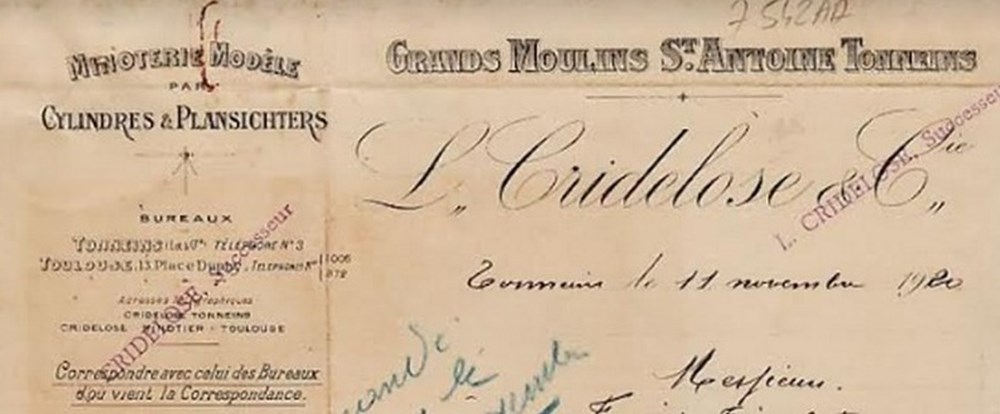 7542AA
MINOTERIE MODÈLE
PAR
CYLINDRES & PLANSICHTERS
BUREAUX
TONNEINS (Lot & Gne) TÉLÉPHONE N° 3
TOULOUSE, 13, Place Dupuy, TÉLÉPHONES Nos 1006
872
Adresses Télégraphiques
CRIDELOSE TONNEINS
CRIDELOSE MINOTIER - TOULOUSE
Correspondre avec celui des Bureaux
d'où vient la Correspondance.
L. CRIDELOSE, Successeur
GRANDS MOULINS ST. ANTOINE TONNEINS
L. Cridelose & Cie
L. CRIDELOSE, Successeur
Tonneins le 11 novembre 1920
le
Messieurs.